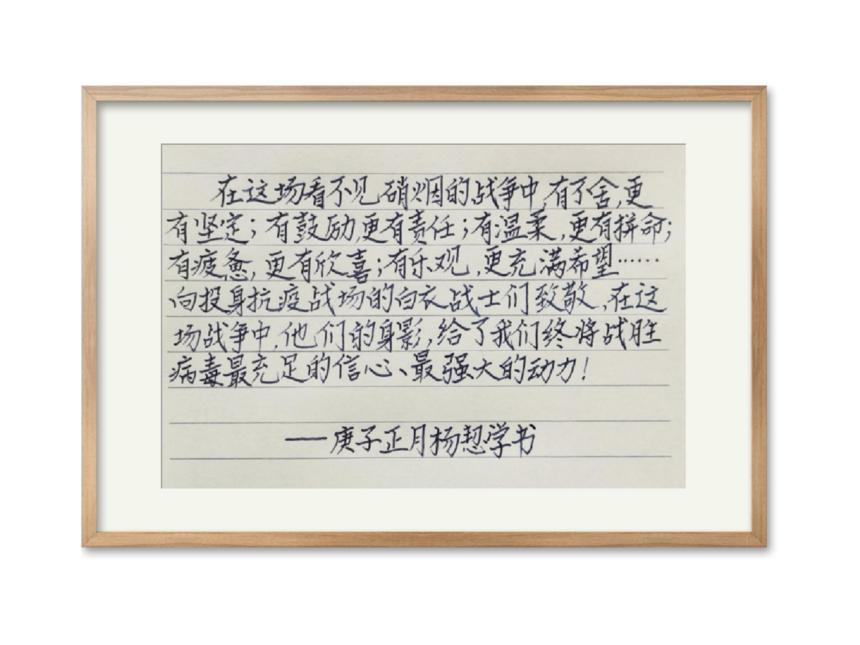 在这场看不见硝烟的战争中,有不舍,更
有坚定;有鼓励,更有责任;有温柔,更有拼命;
有疲惫,更有欣喜;有乐观,更充满希望……
向投身抗疫战场的白衣战士们致敬,在这
场战争中,他们的身影,给了我们终将战胜
病毒最充足的信心、最强大的动力!
——庚子正月杨恝学书